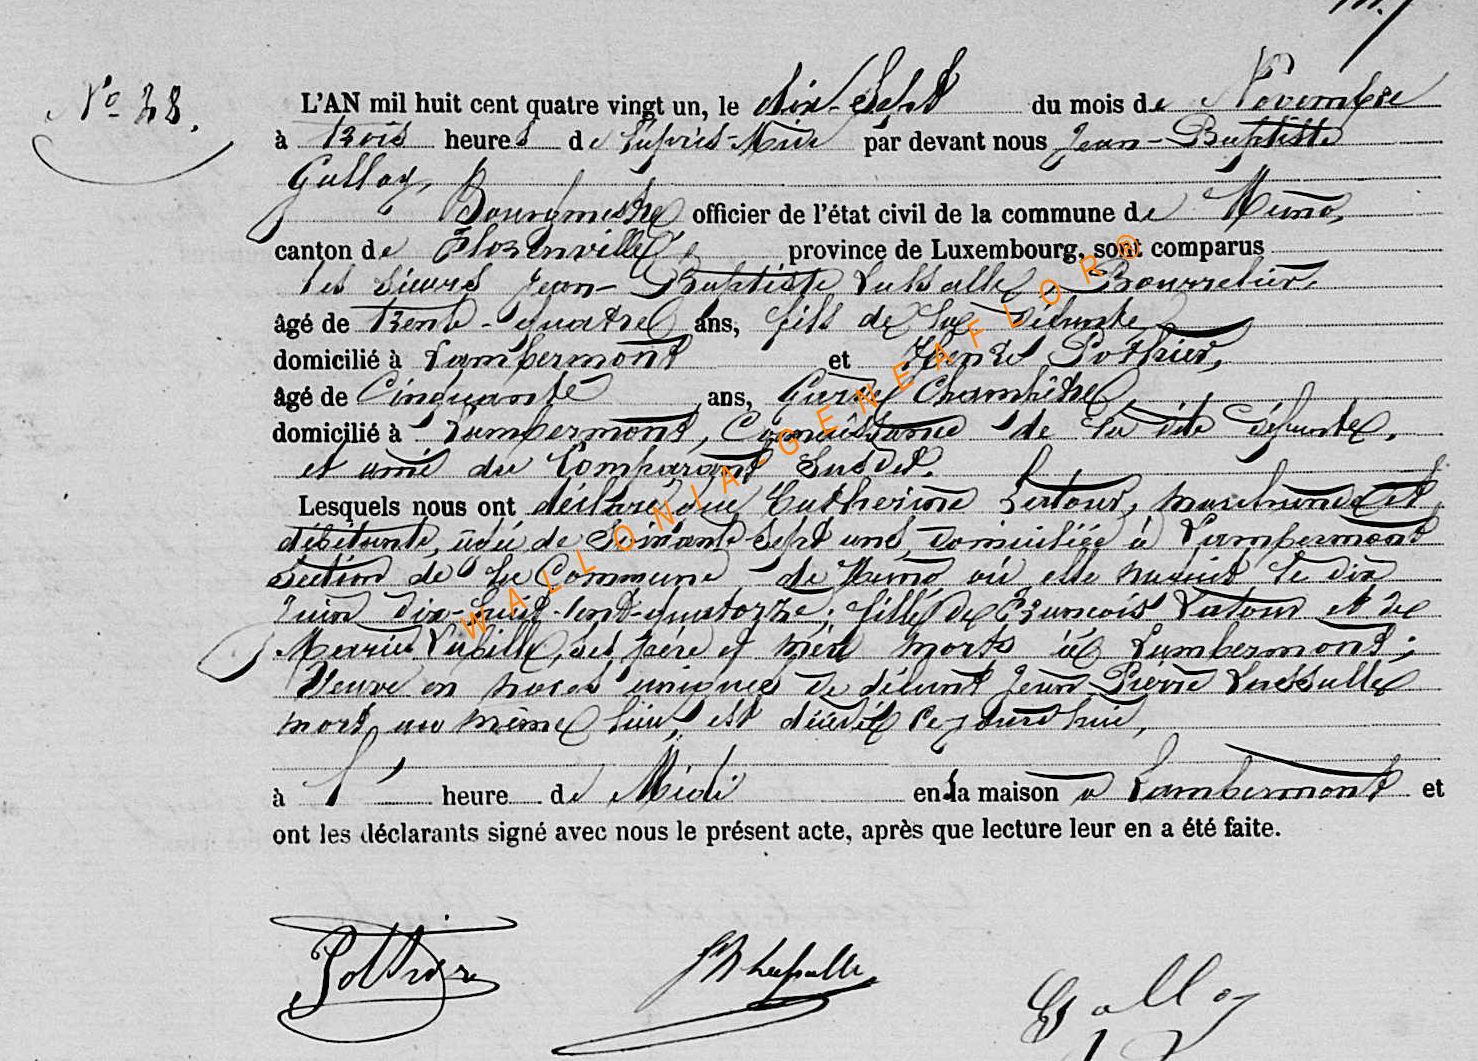 N° 28.
L'AN mil huit cent quatre vingt un, le dix-sept du mois de Novembre
à trois heures de l'après-Midi par devant nous Jean-Baptiste
Galloy,
Bourgmestre officier de l'état civil de la commune de Muno,
canton de Florenville, province de Luxembourg, sont comparus
les sieurs Jean-Baptiste Lassalle, Bourrelier,
âgé de trente-quatre ans, fils de la défunte
domicilié à Lambermont et Henri Pothier,
âgé de Cinquante ans, Garde Champêtre
domicilié à Lambermont, Connaissance de la dite défunte,
et ami du Comparant susdit.
Lesquels nous ont déclaré que Catherine Latour, marchande et
débitante, âgée de soixante-sept ans, domiciliée à Lambermont
section de la Commune de Muno où elle naquit le dix
Juin dix-huit-cent-quatorze; fille de François Latour et de
Marie Lapille, ses père et mère morts à Lambermont;
Veuve en noces uniques de défunt Jean Pierre Lassalle
mort au même lieu, est décédée ce jourd'hui,
à 1 heure de Midi en la maison à Lambermont et
ont les déclarants signé avec nous le présent acte, après que lecture leur en a été faite.
WALLONIA-GENEAFLOR®
Pothier JB Lassalle Galloy